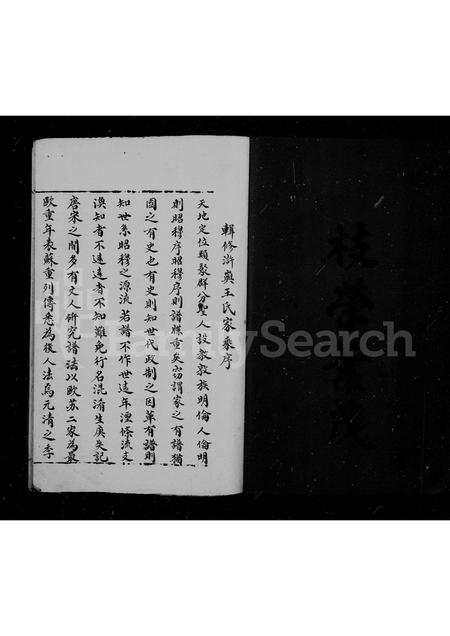 枝榮葉茂
輯修滸奧王氏家乘序
天地定位類聚群分聖人設教敦族明倫人倫明
則昭穆序昭穆序則譜牒重矣竊謂家之有譜猶
國之有史也有史則知世代政制之因革有譜則
知世系昭穆之源流若譜不作世遠年湮條流支
漠知者不遠遠者不知難免行名混淆生庚失記
唐宋之間多有文人研究譜法以歐苏二家為最
歐重年表蘇重列傳悉為後人法焉元清之季
FamilySearch